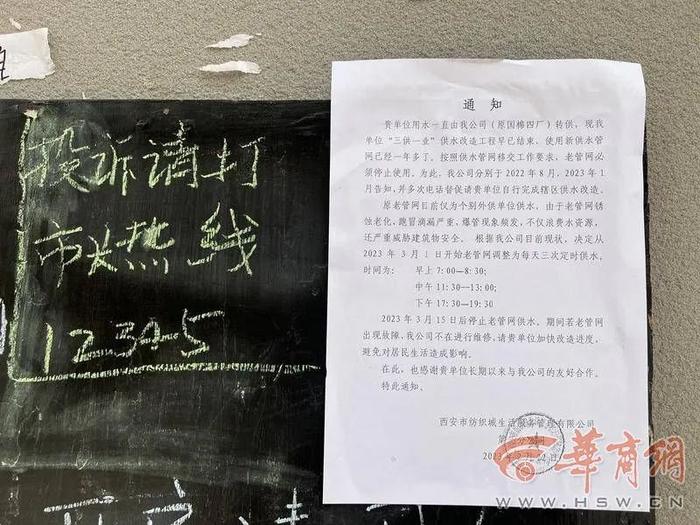 投诉请打
市长热线
12345
通 知
贵单位用水一直由我公司（原国棉四厂）转供，现我
单位“三供一业”供水改造工程早已结束，使用新供水管
网已经一年多了。按照供水管网移交工作要求，老管网必
须停止使用。为此，我公司分别于2022年8月，2023年1
月告知，并多次电话督促请贵单位自行完成辖区供水改造。
原老管网目前仅为个别外供单位供水，由于老管网锈
蚀老化，跑冒滴漏严重，爆管现象频发，不仅浪费水资源，
还严重威胁建筑物安全。根据我公司目前现状，决定从
2023年3月1日开始老管网调整为每天三次定时供水。
时间为： 早上7:00-8:30;
中午11:30-13:00;
下午17:30-19:30
2023年3月15日后停止老管网供水。期间若老管网
出现故障，我公司不在进行维修，请贵单位加快改造进度，
避免对居民生活造成影响。
在此，也感谢贵单位长期以来与我公司的友好合作。
特此通知。
西安市纺织城生活服务管理有限公司
华商网
WWW.HSW.CN